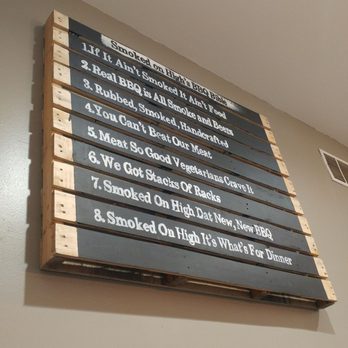 Smoked on High's BBQ Bible
1.If It Ain't Smoked It Ain't Food
2. Real BBQ is All Smoke and Beem
3. Rubbed, Smoked, Handcrafted
4.You Can't Beat Our Meat
5. Meat So Good Vegetarians Crave It
6. We Got Stacks Of Racks
7. Smoked On High Dat New, New BBQ
8. Smoked On High It's What's For Dinner